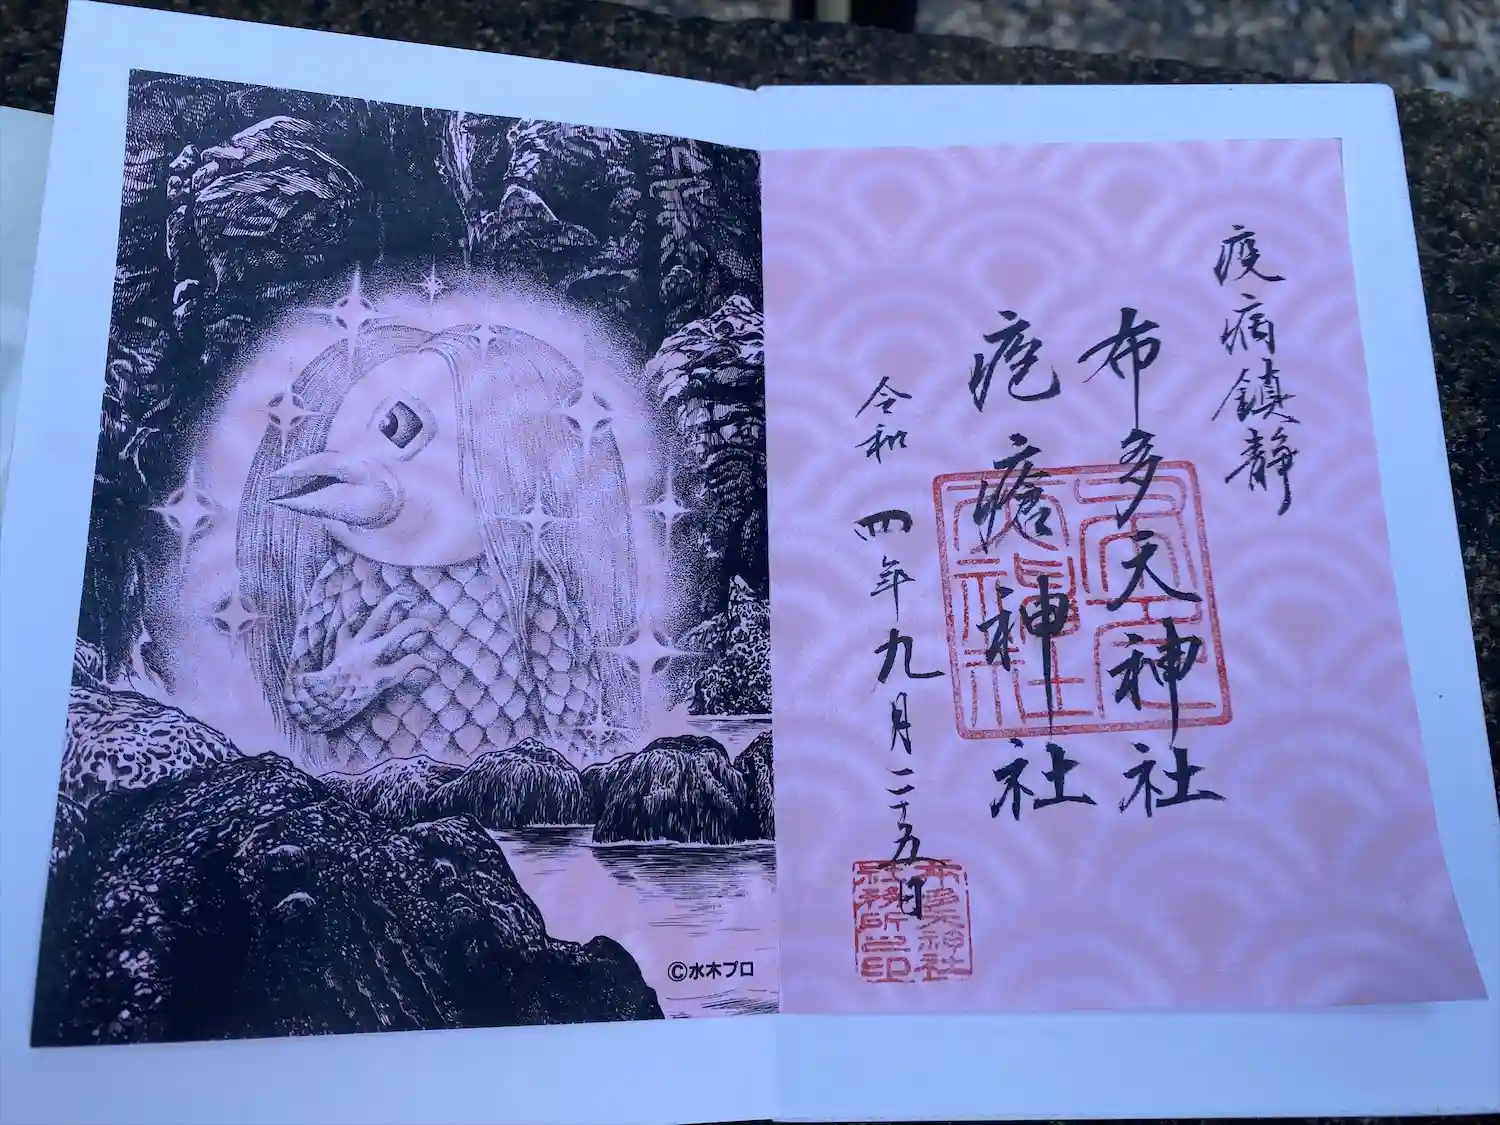 疫病鎮静
布多天神社
疱瘡神社
令和四年九月二十五日
布多天神社
社務所之印
©水木プロ